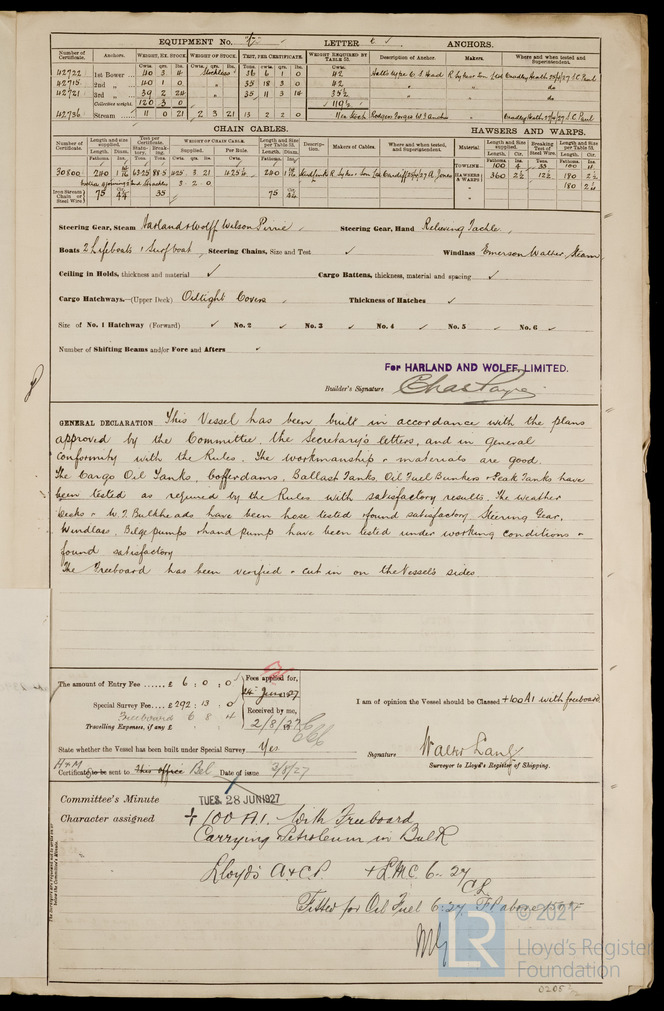 EQUIPMENT No. LETTER t ANCHORS.
Number of Certificate. Anchors. WEIGHT, EX. STOCK. WEIGHT OF STOCK. TEST, PER CERTIFICATE. WEIGHT REQUIRED BY TABLE 53. Description of Anchor. Makers. Where and when tested and Superintendent.
Cwts. qrs. lbs. Cwts. qrs. lbs. Tons. cwts. qrs. lbs. Cwts.
42722 1st Bower 40 3 4 Stockless 36 6 1 0 42 R Sykes & Son Ltd Cradley Heath
42715 2nd " 40 1 0 " 35 18 3 0 42 " do
42721 3rd " 39 2 24 " 35 11 3 14 35½ " do
Collective weight. 120 3 0 119½
42736 Stream 11 0 21 2 3 21 13 2 2 0 Cradley Heath
CHAIN CABLES. HAWSERS AND WARPS.
Number of Certificate. Length and size supplied. Test per Certificate. WEIGHT OF CHAIN CABLE. Length and size per Table 53. Description. Makers of Cables. Where and when tested, and Superintendent. Material Length and Size supplied. Breaking Test of Steel Wire. Length and Size per Table 53.
Length. Diam. Statutory. Breaking. Supplied. Per Rule. Length. Diam. Length. Cir. Length. Cir.
TOWLINE 100 4 33 100 4
30800 240 1 63.25 88.5 425 3 21 425.4 240 1 Studlink R Sykes & Son Ltd Cardiff A Jones HAWSERS & WARPS 360 2½ 12½ 180 2½
3 2 0 180 2¼
Iron Stream Chain or Steel Wire 75 4¼ 35 75 4¼
Steering Gear, Steam Harland & Wolff Wilson Pirrie Steering Gear, Hand Relieving Tackle
Boats 2 Lifeboats 1 Surfboat Steering Chains, Size and Test ✓ Windlass Emerson Walker, Steam
Ceiling in Holds, thickness and material ✓ Cargo Battens, thickness, material and spacing ✓
Cargo Hatchways.—(Upper Deck) Oiltight Covers Thickness of Hatches ✓
Size of No. 1 Hatchway (Forward) ✓ No. 2 ✓ No. 3 ✓ No. 4 ✓ No. 5 ✓ No. 6 ✓
Number of Shifting Beams and/or Fore and Afters ✓
For HARLAND AND WOLFF, LIMITED.
Builder's Signature Chas Payne
GENERAL DECLARATION This Vessel has been built in accordance with the plans
approved by the Committee, the Secretary's letters, and in general
conformity with the Rules. The workmanship & materials are good.
The Cargo Oil Tanks, Cofferdams, Ballast Tanks, Oil Fuel Bunkers & Peak Tanks have
been tested as required by the Rules with satisfactory results. The weather
decks & W.T. Bulkheads have been hose tested & found satisfactory. Steering Gear,
Windlass, Bilge pumps & hand pump have been tested under working conditions &
found satisfactory
The Freeboard has been verified & cut in on the Vessel's sides
The amount of Entry Fee ...... £ 6 : 0 : 0 Fees applied for,
Special Survey Fee... £ 292 : 13 : 0 Received by me,
I am of opinion the Vessel should be Classed +100A1 with freeboard
Freeboard 6 8 4
Travelling Expenses, if any £ 2/8/27
State whether the Vessel has been built under Special Survey Yes
Signature Walter Lang
Surveyor to Lloyd's Register of Shipping.
H+M
Certificate to be sent to This office Bel Date of issue 3/8/27
Committee's Minute TUES. 28 JUN 1927
Character assigned + 100 A.1. With Freeboard
Carrying Petroleum in Bulk
Lloyd's A & C.P. + L.M.C. 6-27
C.L.
Fitted for Oil Fuel 6.27 F.P. above 150°F
© 2021
LR
Lloyd's Register
Foundation